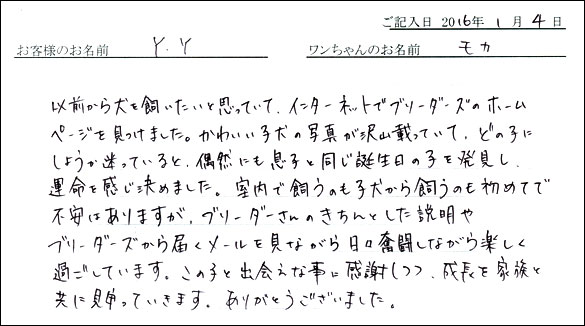 ご記入日 2016年 1月 4日
お客様のお名前 Y.Y ワンちゃんのお名前 モカ
以前から犬を飼いたいと思っていて、インターネットでブリーダーズのホーム
ページを見つけました。かわいい子犬の写真が沢山載っていて、どの子に
しようか迷っていると、偶然にも息子と同じ誕生日の子を発見し、
運命を感じ決めました。室内で飼うのも子犬から飼うのも初めてで
不安はありますが、ブリーダーさんのきちんとした説明や
ブリーダーズから届くメールを見ながら日々奮闘しながら楽しく
過ごしています。この子と出会えた事に感謝しつつ、成長を家族と
共に見守っていきます。ありがとうございました。